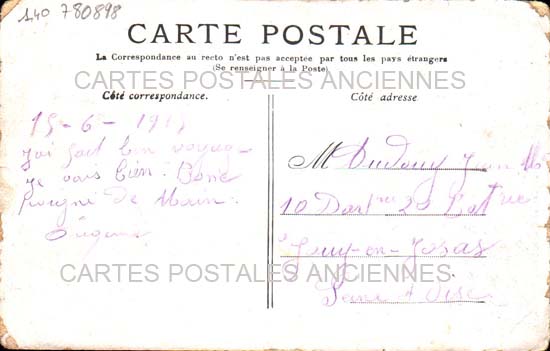 140 780898
CARTE POSTALE
La Correspondance au recto n'est pas acceptée par tous les pays étrangers
(Se renseigner à la Poste)
CARTES POSTALES ANCIENNES
Côté correspondance.
Côté adresse
15-6-191
J'ai fait bon voyag-
je vais bien. Bonne
Poigne de Main
Eugène
M Jean
10
Jouy-en-Josas
Seine & Oise
CARTES POSTALES ANCIENNES